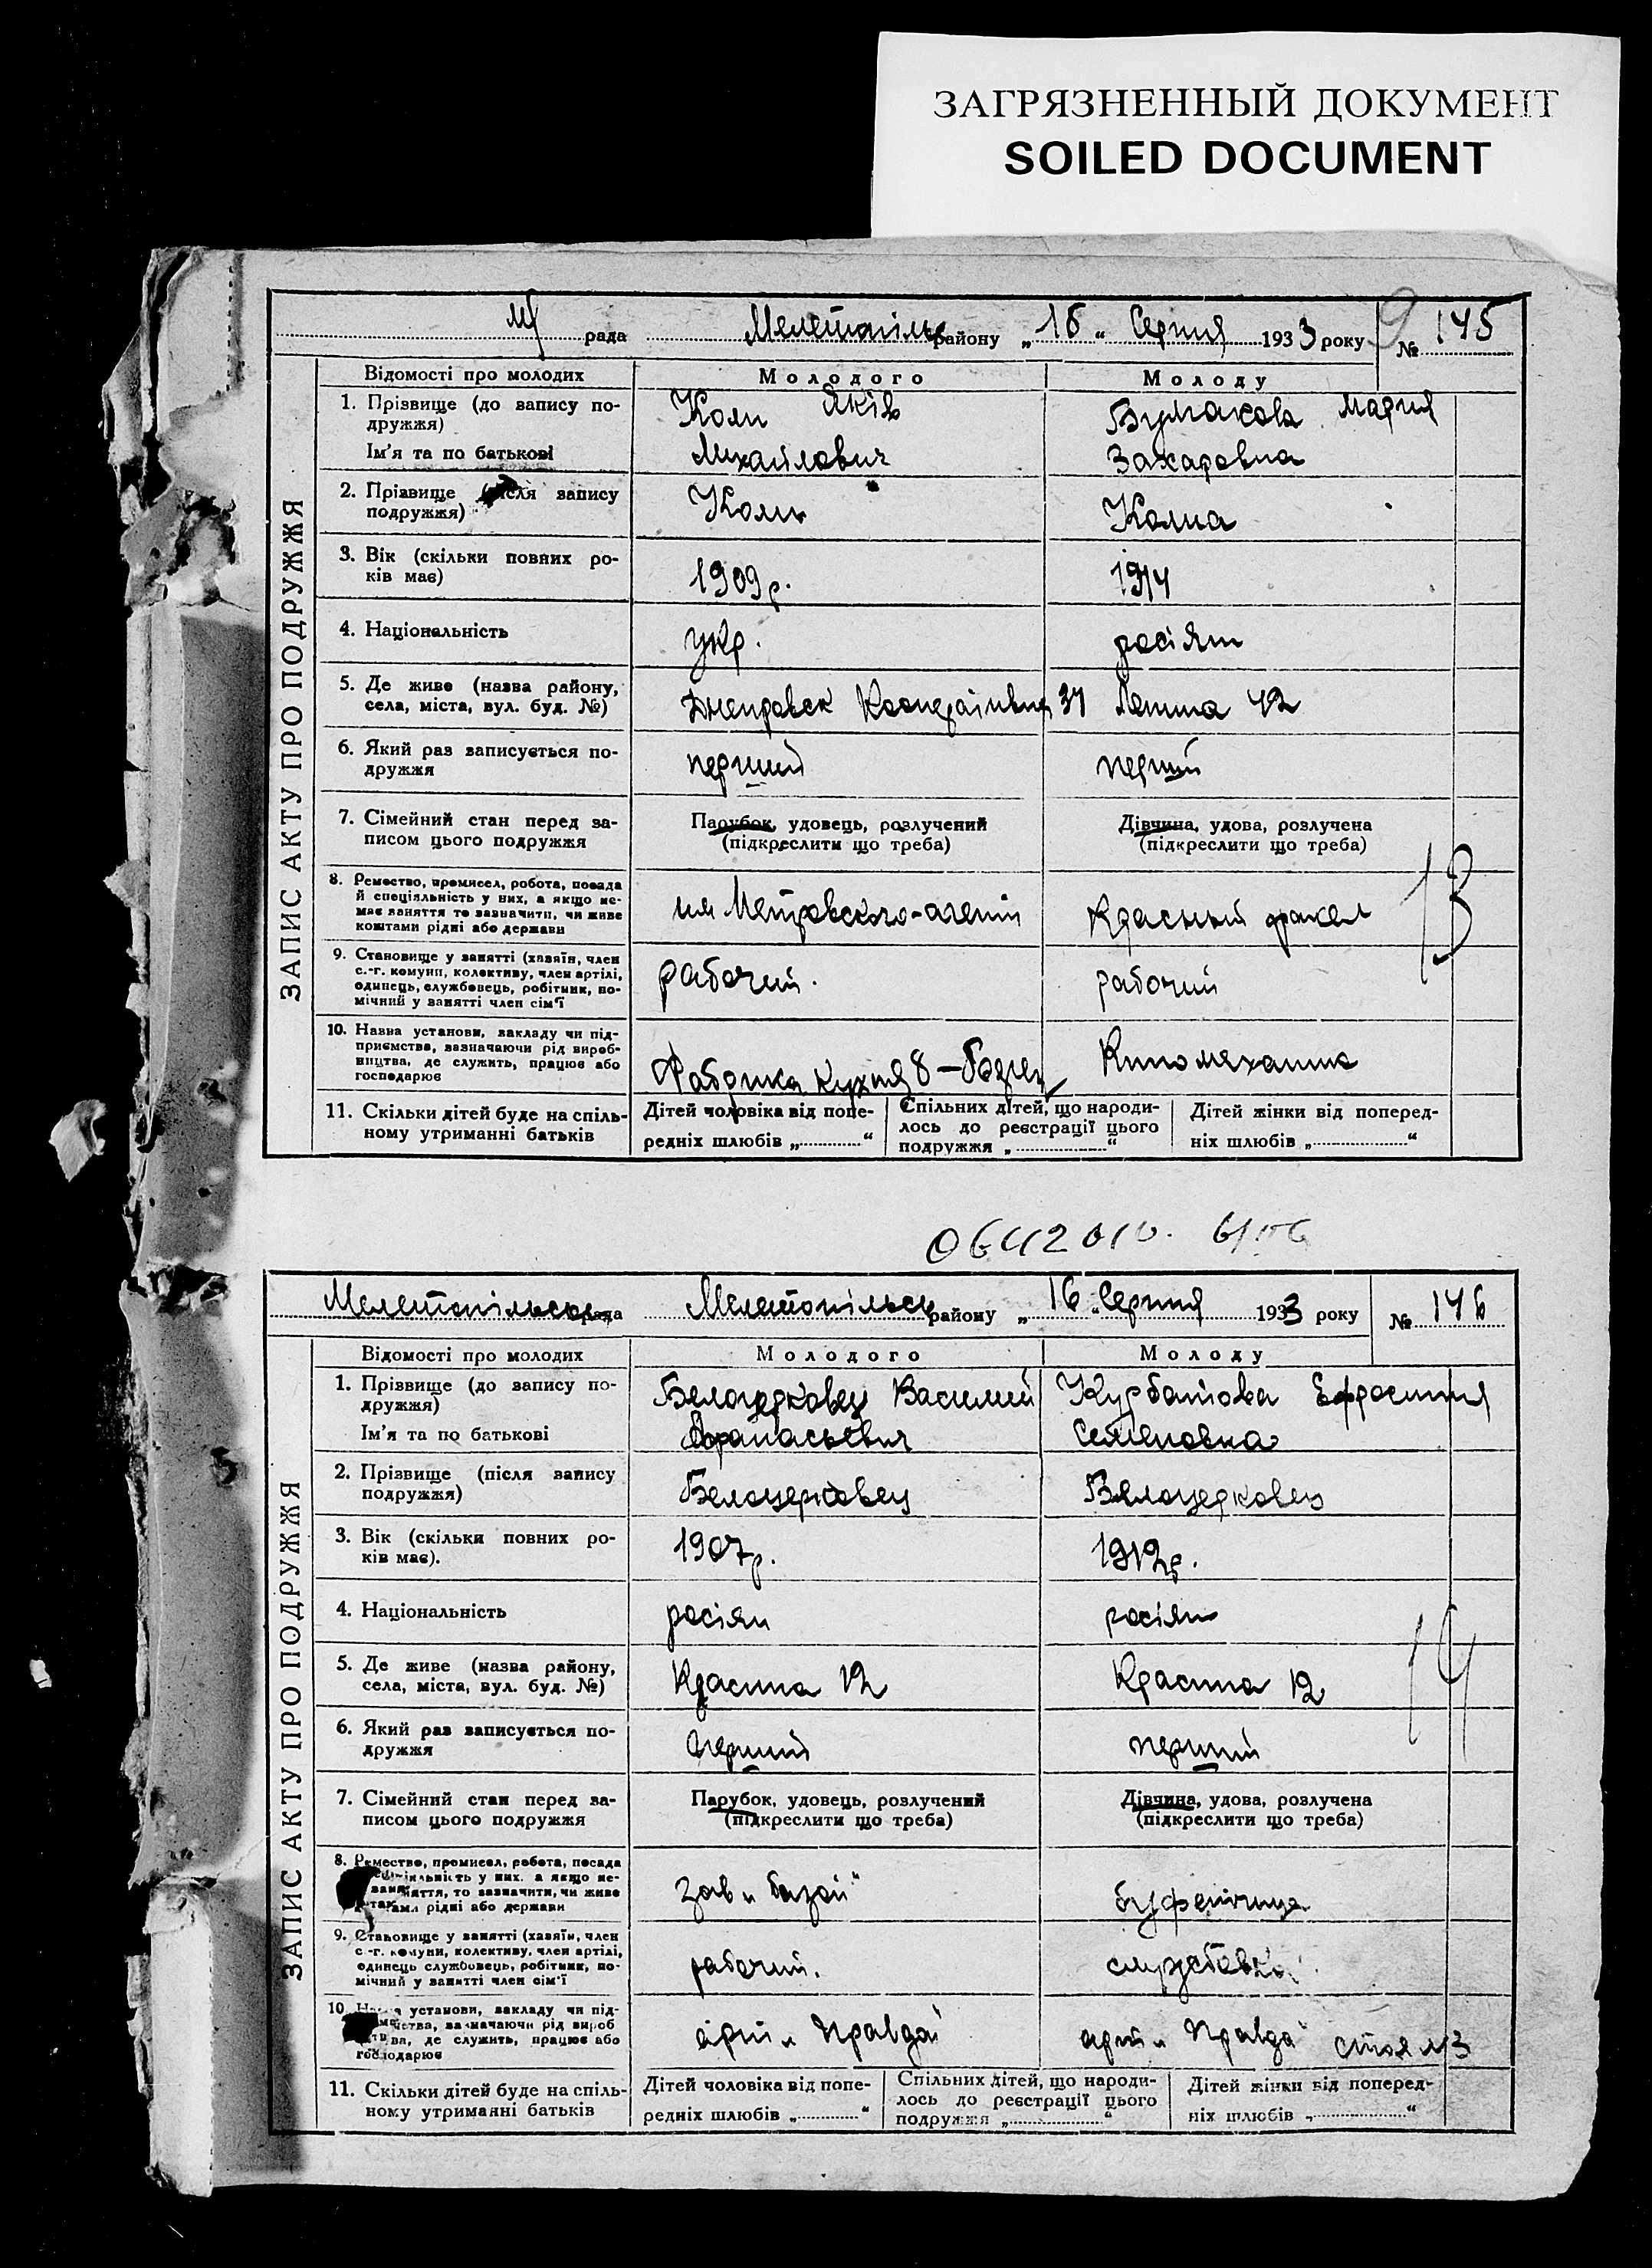 ЗАГРЯЗНЕННЫЙ ДОКУМЕНТ
SOILED DOCUMENT
рада Мелетопільськ району „16“ Серпня 1933 року № 145
ЗАПИС АКТУ ПРО ПОДРУЖЖЯ
Відомості про молодих Молодого Молоду
1. Прізвище (до запису по-
дружжя)
Ім'я та по батькові
Яків
Михайлович
Мария
Захаровна
2. Прізвище (після запису
подружжя)
3. Вік (скільки повних ро-
ків має)
1909р.
1914
4. Національність
укр.
росіян
5. Де живе (назва району,
села, міста, вул. буд. №)
Днепровск 37
Ленина 42
6. Який раз записується по-
дружжя
перший
перший
7. Сімейний стан перед за-
писом цього подружжя
Парубок, удовець, розлучений
(підкреслити що треба)
Дівчина, удова, розлучена
(підкреслити що треба)
8. Ремество, промисел, робота, посада
й спеціяльність у них, а якщо не-
має заняття то зазначити, чи живе
коштами рідні або держави
Красный факел
13
9. Становище у занятті (хазяїн, член
с.-г. комуни, колективу, член артілі,
одинець, службовець, робітник, по-
мічний у занятті член сім'ї
рабочий.
рабочий
10. Назва установи, закладу чи під-
приємства, зазначаючи рід вироб-
ництва, де служить, працює або
господарює
Фабрика кухня 8
Киномеханик
11. Скільки дітей буде на спіль-
ному утриманні батьків
Дітей чоловіка від попе-
редніх шлюбів „ “
Спільних дітей, що народи-
лось до реєстрації цього
подружжя „ “
Дітей жінки від поперед-
ніх шлюбів „ “
Мелетопільська рада Мелетопільськ району „16“ Серпня 1933 року № 146
ЗАПИС АКТУ ПРО ПОДРУЖЖЯ
Відомості про молодих Молодого Молоду
1. Прізвище (до запису по-
дружжя)
Ім'я та по батькові
Белоцерковец Василий
Афанасьевич
Курбатова Ефросиния
Семеновна
2. Прізвище (після запису
подружжя)
Белоцерковец
Белоцерковец
3. Вік (скільки повних ро-
ків має).
1907р.
1912р.
4. Національність
росіян
росіян
5. Де живе (назва району,
села, міста, вул. буд. №)
Красина 12
Красина 12
14
6. Який раз записується по-
дружжя
перший
перший
7. Сімейний стан перед за-
писом цього подружжя
Парубок, удовець, розлучений
(підкреслити що треба)
Дівчина, удова, розлучена
(підкреслити що треба)
8. Ремество, промисел, робота, посада
у них, а якщо не-
то зазначити, чи живе
рідні або держави
Зав „базой“
буфетчица
9. Становище у занятті (хазяїн, член
с.-г. комуни, колективу, член артілі,
одинець службовець, робітник, по-
мічний у занятті член сім'ї
рабочий.
10. установи, закладу чи під-
зазначаючи рід вироб
де служить, працює або
господарює
арт „Правда“
арт „Правда“ стол №3
11. Скільки дітей буде на спіль-
ному утриманні батьків
Дітей чоловіка від попе-
редніх шлюбів „ “
Спільних дітей, що народи-
лось до реєстрації цього
подружжя „ “
Дітей жінки від поперед-
ніх шлюбів „ “